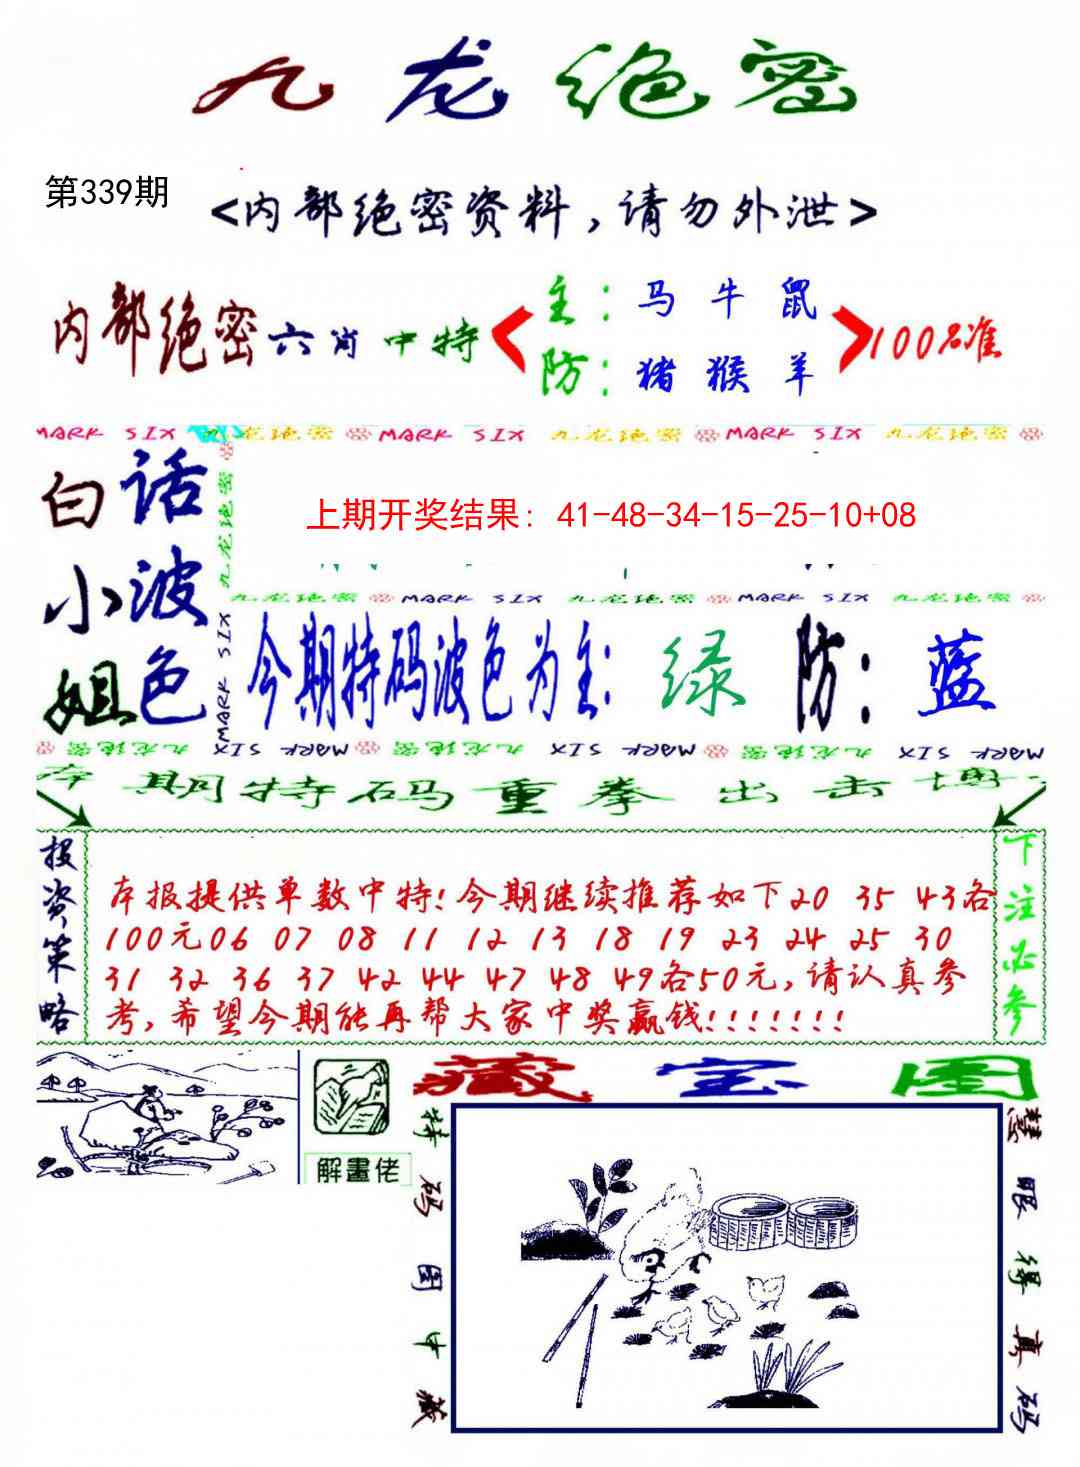 九龙绝密
第339期
<内部绝密资料，请勿外泄>
内部绝密六肖中特
主：马 牛 鼠
防：猪 猴 羊
100%准
MARK SIX 九龙绝密 MARK SIX 九龙绝密 MARK SIX 九龙绝密
白话
小波
姐色
九龙绝密
MARK SIX
上期开奖结果: 41-48-34-15-25-10+08
九龙绝密 MARK SIX 九龙绝密 MARK SIX 九龙绝密
今期特码波色为主: 绿 防: 蓝
九龙绝密 MARK SIX 九龙绝密 MARK SIX 九龙绝密 MARK SIX
本期特码重拳出击博
投资策略
本报提供单数中特!今期继续推荐如下20 35 43各
100元06 07 08 11 12 13 18 19 23 24 25 30
31 32 36 37 42 44 47 48 49各50元,请认真参
考,希望今期能再帮大家中奖赢钱!!!!!!!
下注必参
解畫佬
藏宝图
特码图中藏
慧眼得真码